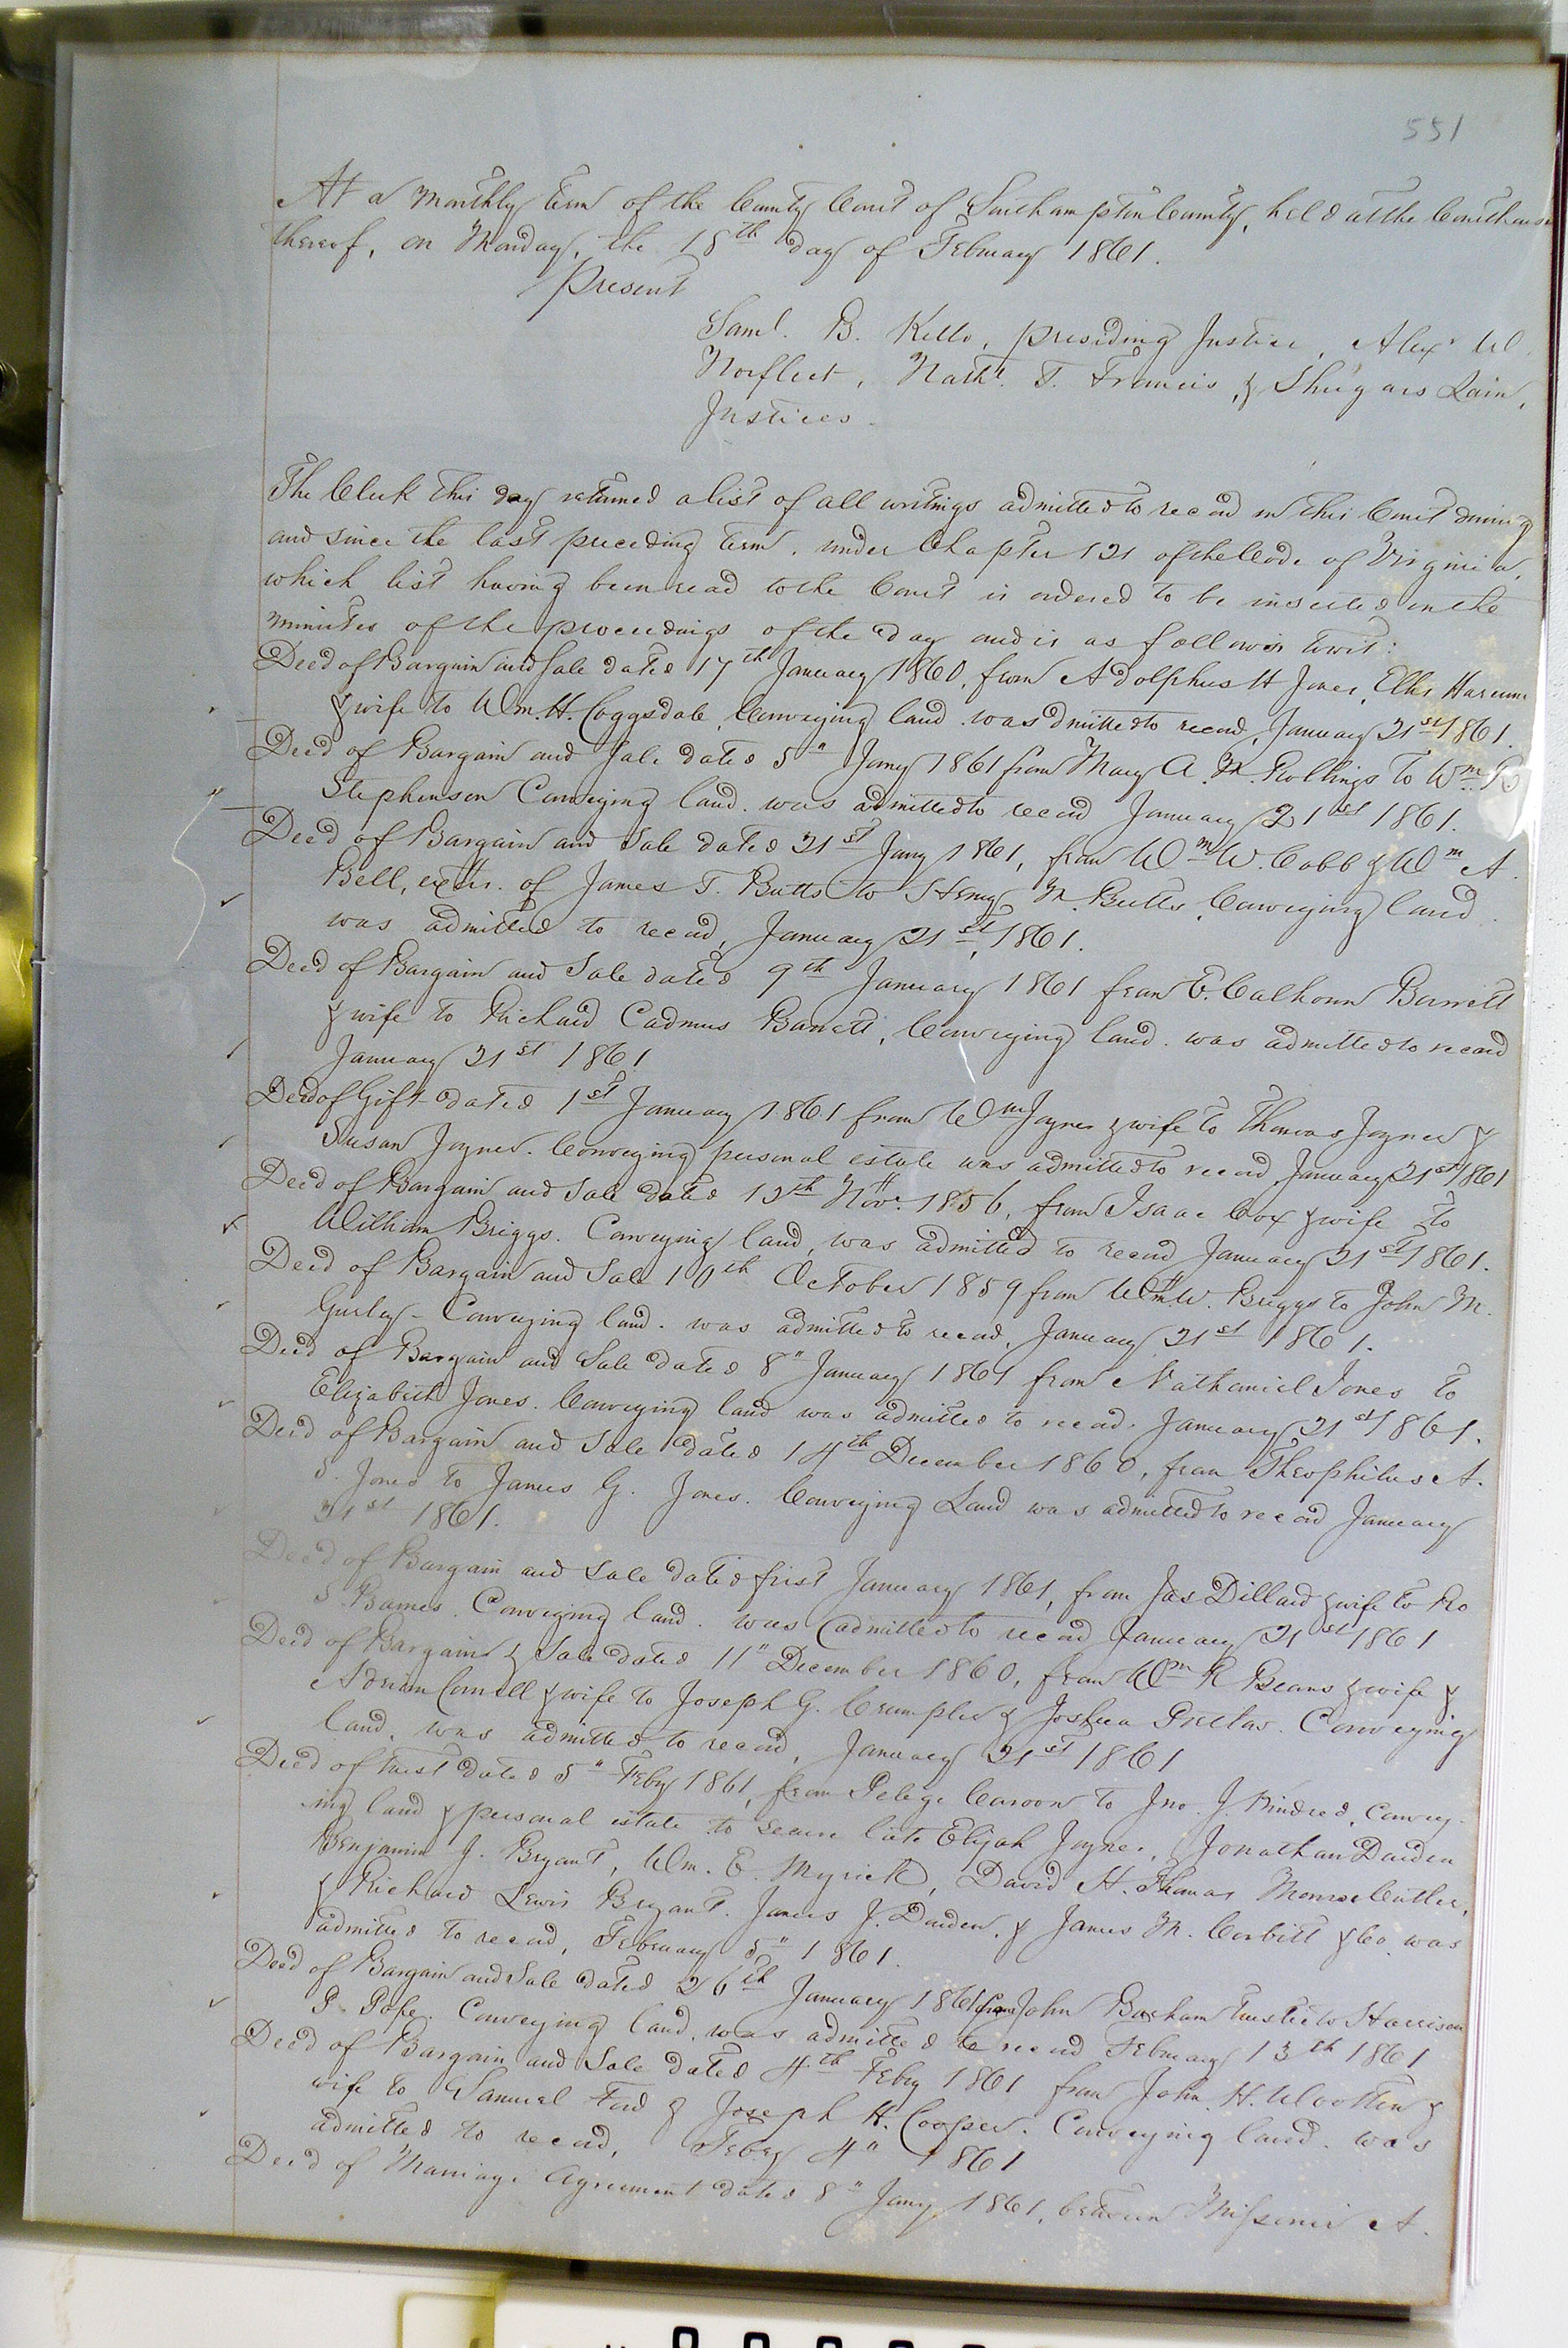 551
At a Monthly term of the County Court of Southampton County, held at the Courthouse
thereof, on Monday, the 18th day of February 1861.
Present
Saml. B. Kello, presiding Justice, Alexr W.
Norfleet, Nathl. T. Francis, & Shugars Lain,
Justices.
The Clerk this day returned a list of all writings admitted to record in this Court during
and since the last preceding term, under Chapter 121 of the Code of Virginia,
which list having been read to the Court is ordered to be inserted in the
minutes of the proceedings of the day and is as follows towit:
Deed of Bargain and Sale dated 17th January 1860, from Adolphus H Jones, Ellis
& wife to Wm. H. Coggsdale, Conveying land was admitted to record, January 21st 1861.
Deed of Bargain and Sale dated 5" Jany 1861 from Mary A. M. Rollings to Wm. B
Stephenson Conveying land. was admitted to record January 21st 1861.
Deed of Bargain and Sale dated 21st Jany 1861, from Wm W. Cobb & Wm A.
Bell, extrs. of James T. Butts to Henry M. Butts Conveying land
was admitted to record, January 21st, 1861.
Deed of Bargain and Sale dated 9th January 1861 from E. Calhoun Barrett
& wife to Richard Cadmus Barrett, Conveying land. was admitted to record
January 21st 1861
Deed of Gift dated 1st January 1861 from Wm Joyner & wife to Thomas Joyner &
Susan Joyner. Conveying personal estate was admitted to record January 21st 1861
Deed of Bargain and Sale dated 12th Novr. 1856, from Isaac Cox & wife to
William Briggs. Conveying land, was admitted to record January 21st 1861.
Deed of Bargain and Sale 10th October 1859 from Wm. W. Briggs to John M.
Gurley - Conveying land. was admitted to record, January 21st 1861.
Deed of Bargain and Sale dated 8" January 1861 from Nathaniel Jones to
Elizabeth Jones. Conveying land was admitted to record. January 21st 1861.
Deed of Bargain and Sale dated 14th December 1860, from Theophilus A.
S. Jones to James G. Jones. Conveying Land was admitted to record January
21st 1861.
Deed of Bargain and Sale dated first January 1861, from Jas Dillard & wife to Ro
S. Barnes. Conveying land. was admitted to record January 21st 1861
Deed of Bargain & Sale dated 11" December 1860, from Wm R Beans & wife &
Adrian Cornell & wife to Joseph G. Crumpler & Joshua Pretlow. Conveying
land, was admitted to record, January 21st 1861
Deed of trust dated 5" Feby 1861, from Pelege Caroon to Jno. J. Kindred, Convey-
ing land & personal estate to secure late Elijah Joyner, Jonathan Darden
Benjamin J. Bryant, Wm. E. Myrick, David H. Thomas Monroe Cutler,
& Richard Lewis Bryant. James J. Darden, & James M. Corbitt & Co. was
admitted to record, February 5" 1861.
Deed of Bargain and Sale dated 26th January 1861 from John Barham trustee to Harrison
P. Pope. Conveying land, was admitted to record February 13th 1861
Deed of Bargain and Sale dated 4th Feby 1861 from John H. Wootten &
wife to Samuel Ford & Joseph H. Cooper. Conveying land. was
admitted to record, Feby 4" 1861
Deed of Marriage Agreement dated 8" Jany 1861, between A.